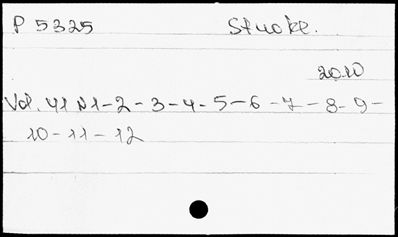 P 5325 Stuoke.
2010
Vol. 41 N1-2-3-4-5-6-7-8-9-
10-11-12